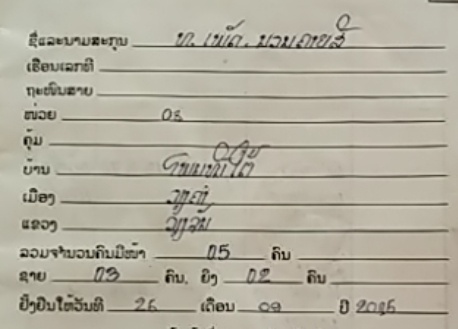 ຊື່ແລະນາມສະກຸນ ທ. ເພັດ. ມວນ
ເຮືອນເລກທີ
ຖະໜົນສາຍ
ໜ່ວຍ 08
ຄຸ້ມ
ບ້ານ ໂພນທັນ ໃຕ້
ເມືອງ
ແຂວງ
ລວມຈຳນວນຄົນມີໜ້າ 05 ຄົນ
ຊາຍ 03 ຄົນ, ຍິງ 02 ຄົນ
ຢັ້ງຢືນໃຫ້ວັນທີ 26 ເດືອນ 09 ປີ